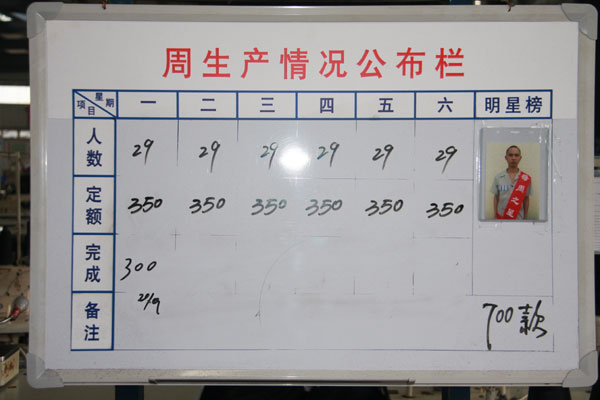 周生产情况公布栏
星期 项目 一 二 三 四 五 六 明星榜
人数 29 29 29 29 29 29
定额 350 350 350 350 350 350
周之星
完成 300
备注 700款